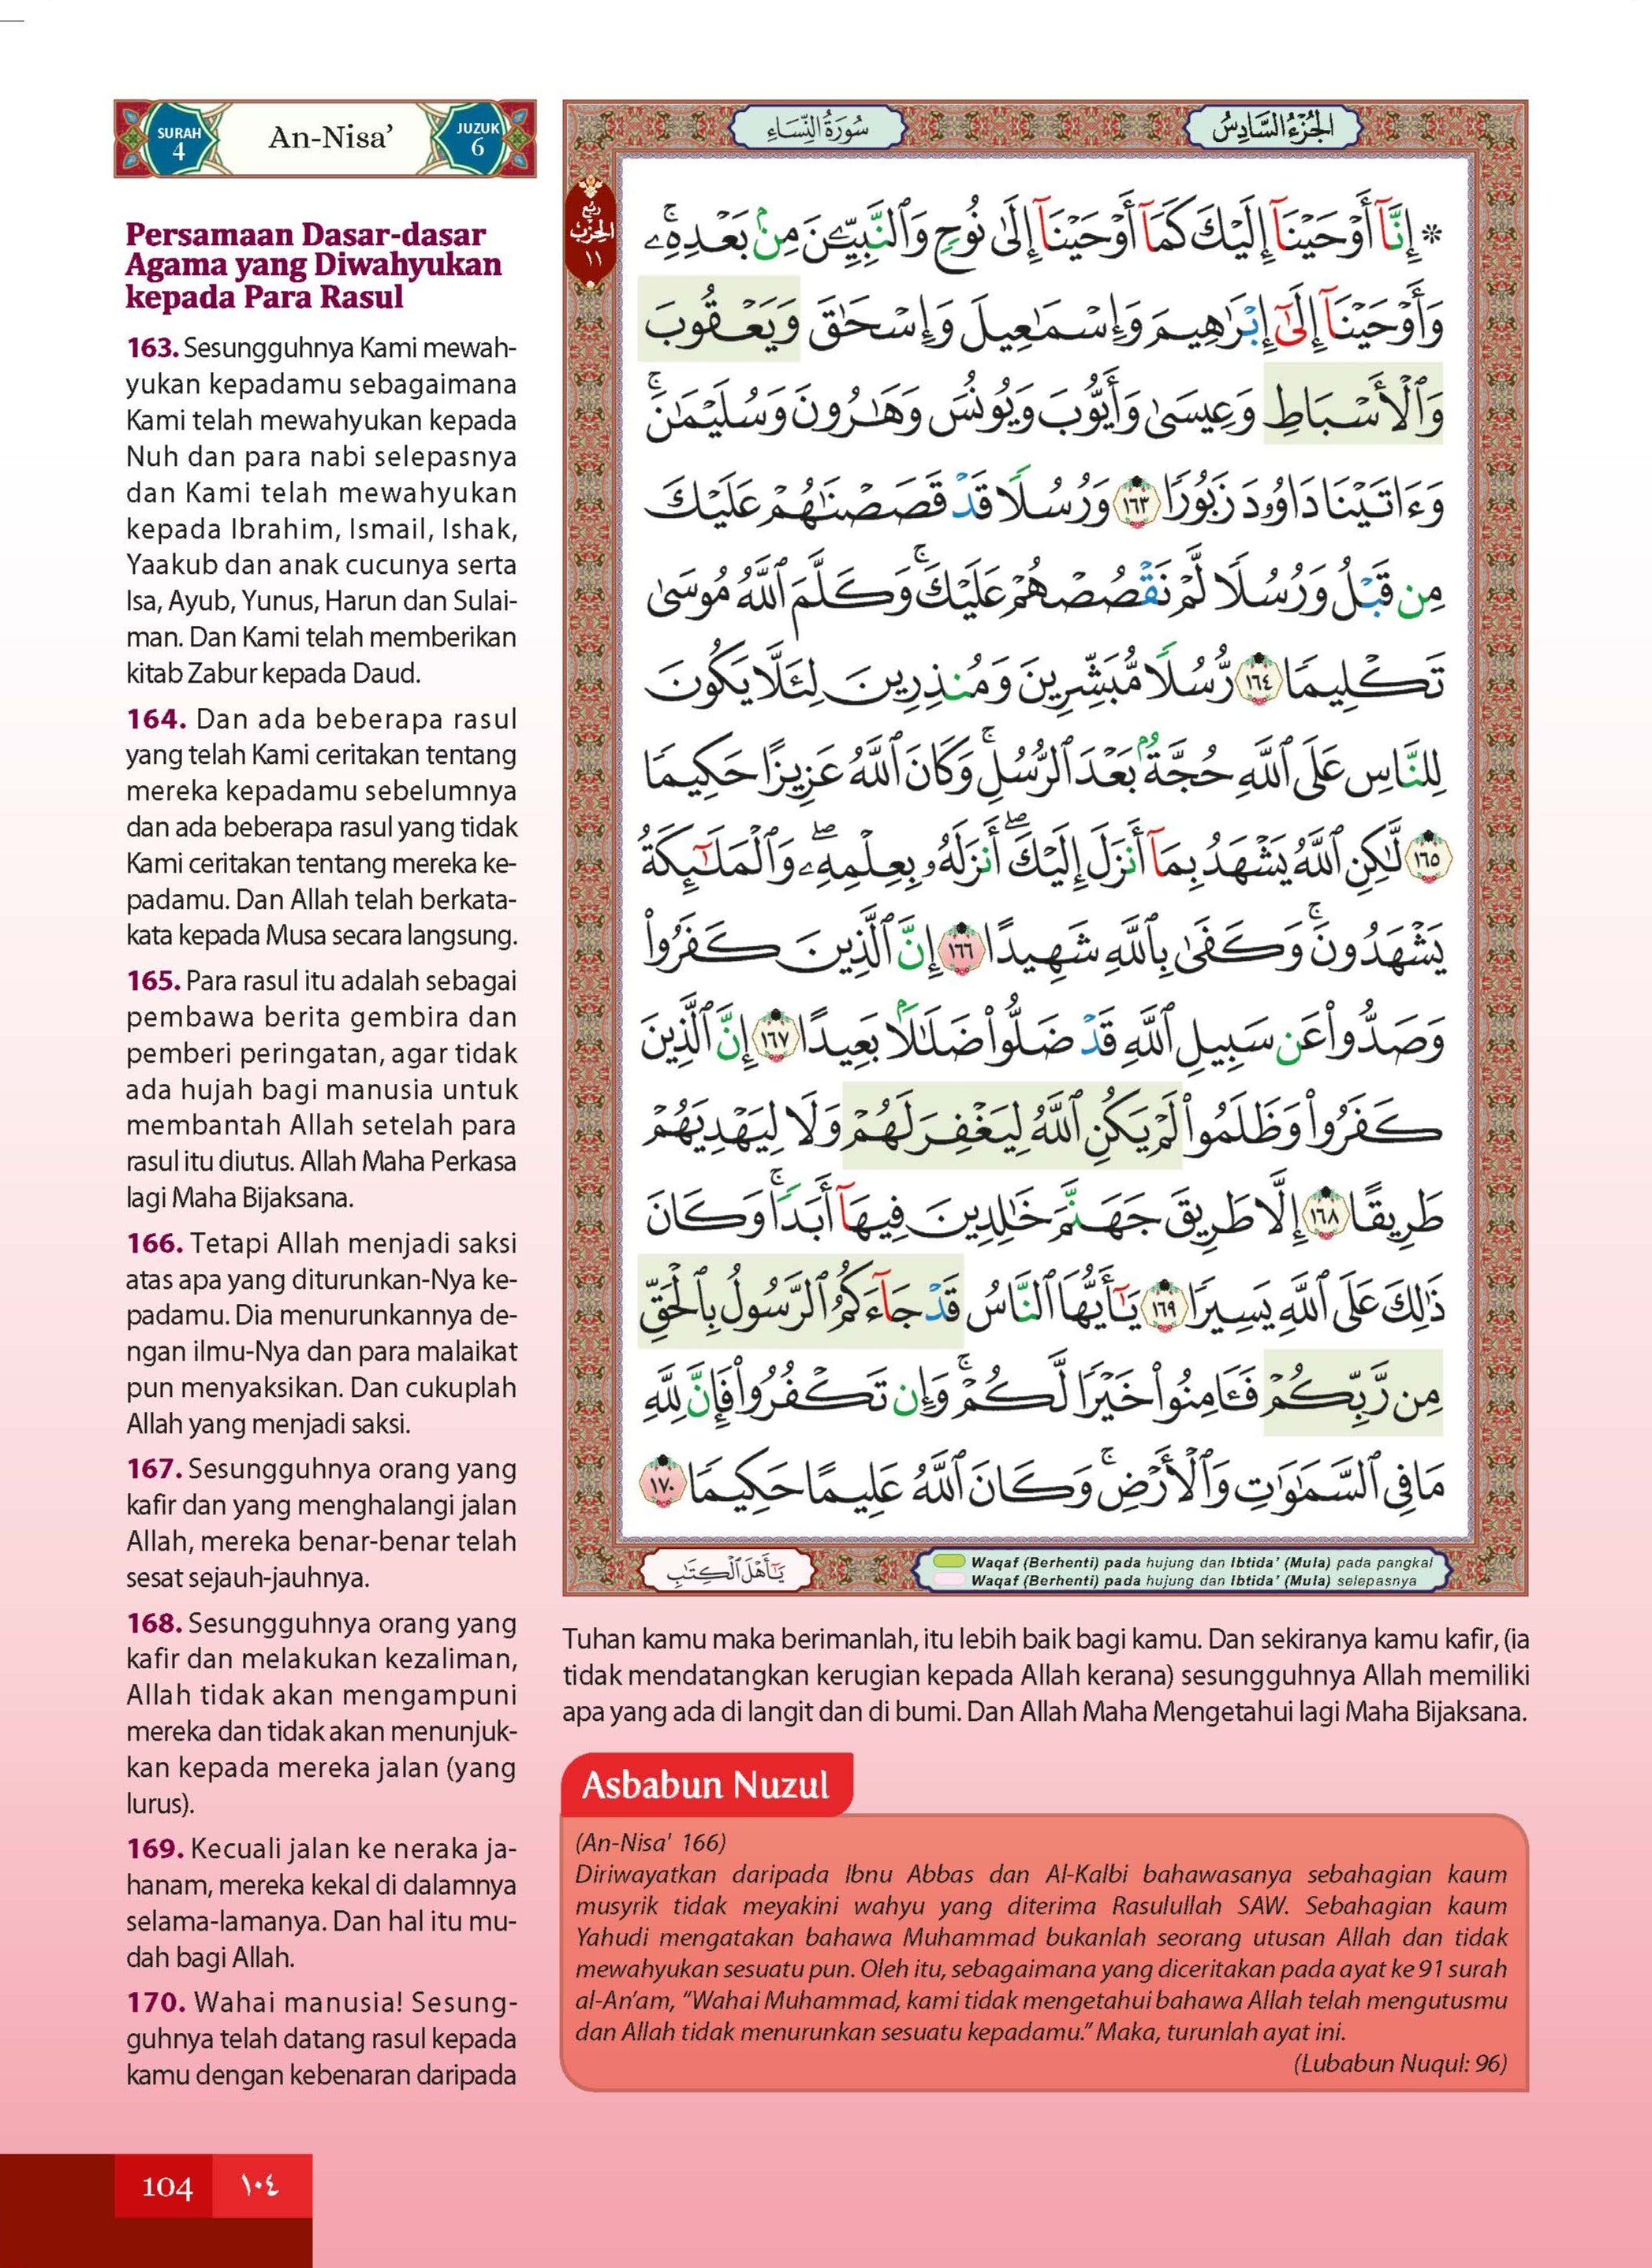 SURAH
4
An-Nisa’
JUZUK
6
سُورَةُ النِّسَاءِ
الجُزْءُ السَّادِسُ
Persamaan Dasar-dasar
Agama yang Diwahyukan
kepada Para Rasul
163. Sesungguhnya Kami mewah-
yukan kepadamu sebagaimana
Kami telah mewahyukan kepada
Nuh dan para nabi selepasnya
dan Kami telah mewahyukan
kepada Ibrahim, Ismail, Ishak,
Yaakub dan anak cucunya serta
Isa, Ayub, Yunus, Harun dan Sulai-
man. Dan Kami telah memberikan
kitab Zabur kepada Daud.
164. Dan ada beberapa rasul
yang telah Kami ceritakan tentang
mereka kepadamu sebelumnya
dan ada beberapa rasul yang tidak
Kami ceritakan tentang mereka ke-
padamu. Dan Allah telah berkata-
kata kepada Musa secara langsung.
165. Para rasul itu adalah sebagai
pembawa berita gembira dan
pemberi peringatan, agar tidak
ada hujah bagi manusia untuk
membantah Allah setelah para
rasul itu diutus. Allah Maha Perkasa
lagi Maha Bijaksana.
166. Tetapi Allah menjadi saksi
atas apa yang diturunkan-Nya ke-
padamu. Dia menurunkannya de-
ngan ilmu-Nya dan para malaikat
pun menyaksikan. Dan cukuplah
Allah yang menjadi saksi.
167. Sesungguhnya orang yang
kafir dan yang menghalangi jalan
Allah, mereka benar-benar telah
sesat sejauh-jauhnya.
168. Sesungguhnya orang yang
kafir dan melakukan kezaliman,
Allah tidak akan mengampuni
mereka dan tidak akan menunjuk-
kan kepada mereka jalan (yang
lurus).
169. Kecuali jalan ke neraka ja-
hanam, mereka kekal di dalamnya
selama-lamanya. Dan hal itu mu-
dah bagi Allah.
170. Wahai manusia! Sesung-
guhnya telah datang rasul kepada
kamu dengan kebenaran daripada
ربع
الحزب
١١
* إِنَّآ أَوْحَيْنَآ إِلَيْكَ كَمَآ أَوْحَيْنَآ إِلَىٰ نُوحٍ وَٱلنَّبِيِّـۧنَ مِنۢ بَعْدِهِۦۚ
وَأَوْحَيْنَآ إِلَىٰٓ إِبْرَٰهِيمَ وَإِسْمَٰعِيلَ وَإِسْحَٰقَ وَيَعْقُوبَ
وَٱلْأَسْبَاطِ وَعِيسَىٰ وَأَيُّوبَ وَيُونُسَ وَهَٰرُونَ وَسُلَيْمَٰنَۚ
وَءَاتَيْنَا دَاوُۥدَ زَبُورًا ١٦٣ وَرُسُلًا قَدْ قَصَصْنَٰهُمْ عَلَيْكَ
مِن قَبْلُ وَرُسُلًا لَّمْ نَقْصُصْهُمْ عَلَيْكَۚ وَكَلَّمَ ٱللَّهُ مُوسَىٰ
تَكْلِيمًا ١٦٤ رُّسُلًا مُّبَشِّرِينَ وَمُنذِرِينَ لِئَلَّا يَكُونَ
لِلنَّاسِ عَلَى ٱللَّهِ حُجَّةٌۢ بَعْدَ ٱلرُّسُلِۚ وَكَانَ ٱللَّهُ عَزِيزًا حَكِيمًا
١٦٥ لَّٰكِنِ ٱللَّهُ يَشْهَدُ بِمَآ أَنزَلَ إِلَيْكَۖ أَنزَلَهُۥ بِعِلْمِهِۦۖ وَٱلْمَلَٰٓئِكَةُ
يَشْهَدُونَۚ وَكَفَىٰ بِٱللَّهِ شَهِيدًا ١٦٦ إِنَّ ٱلَّذِينَ كَفَرُوا۟
وَصَدُّوا۟ عَن سَبِيلِ ٱللَّهِ قَدْ ضَلُّوا۟ ضَلَٰلًۢا بَعِيدًا ١٦٧ إِنَّ ٱلَّذِينَ
كَفَرُوا۟ وَظَلَمُوا۟ لَمْ يَكُنِ ٱللَّهُ لِيَغْفِرَ لَهُمْ وَلَا لِيَهْدِيَهُمْ
طَرِيقًا ١٦٨ إِلَّا طَرِيقَ جَهَنَّمَ خَٰلِدِينَ فِيهَآ أَبَدًاۚ وَكَانَ
ذَٰلِكَ عَلَى ٱللَّهِ يَسِيرًا ١٦٩ يَٰٓأَيُّهَا ٱلنَّاسُ قَدْ جَآءَكُمُ ٱلرَّسُولُ بِٱلْحَقِّ
مِن رَّبِّكُمْ فَـَٔامِنُوا۟ خَيْرًا لَّكُمْۚ وَإِن تَكْفُرُوا۟ فَإِنَّ لِلَّهِ
مَا فِى ٱلسَّمَٰوَٰتِ وَٱلْأَرْضِۚ وَكَانَ ٱللَّهُ عَلِيمًا حَكِيمًا ١٧٠
يَٰٓأَهْلَ ٱلْكِتَٰبِ
Waqaf (Berhenti) pada hujung dan Ibtida’ (Mula) pada pangkal
Waqaf (Berhenti) pada hujung dan Ibtida’ (Mula) selepasnya
Tuhan kamu maka berimanlah, itu lebih baik bagi kamu. Dan sekiranya kamu kafir, (ia
tidak mendatangkan kerugian kepada Allah kerana) sesungguhnya Allah memiliki
apa yang ada di langit dan di bumi. Dan Allah Maha Mengetahui lagi Maha Bijaksana.
Asbabun Nuzul
(An-Nisa' 166)
Diriwayatkan daripada Ibnu Abbas dan Al-Kalbi bahawasanya sebahagian kaum
musyrik tidak meyakini wahyu yang diterima Rasulullah SAW. Sebahagian kaum
Yahudi mengatakan bahawa Muhammad bukanlah seorang utusan Allah dan tidak
mewahyukan sesuatu pun. Oleh itu, sebagaimana yang diceritakan pada ayat ke 91 surah
al-An’am, “Wahai Muhammad, kami tidak mengetahui bahawa Allah telah mengutusmu
dan Allah tidak menurunkan sesuatu kepadamu.” Maka, turunlah ayat ini.
(Lubabun Nuqul: 96)
104 ١٠٤